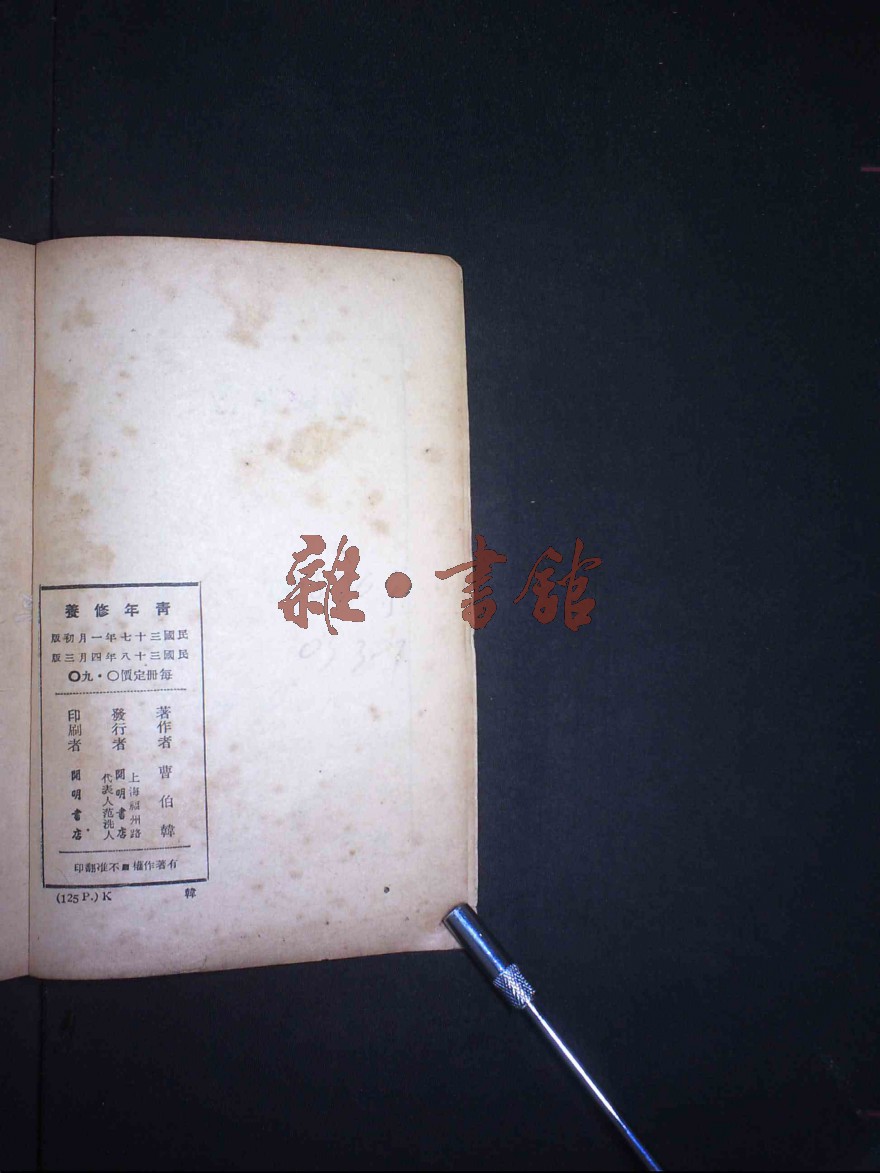 青年修養
民國三十七年一月初版
民國三十八年四月三版
每冊定價〇・九〇
著作者 曹伯韓
發行者 上海福州路
開明書店
代表人范洗人
印刷者 開明書店
有著作權不准翻印
(125 P.) K 韓
雜・書館